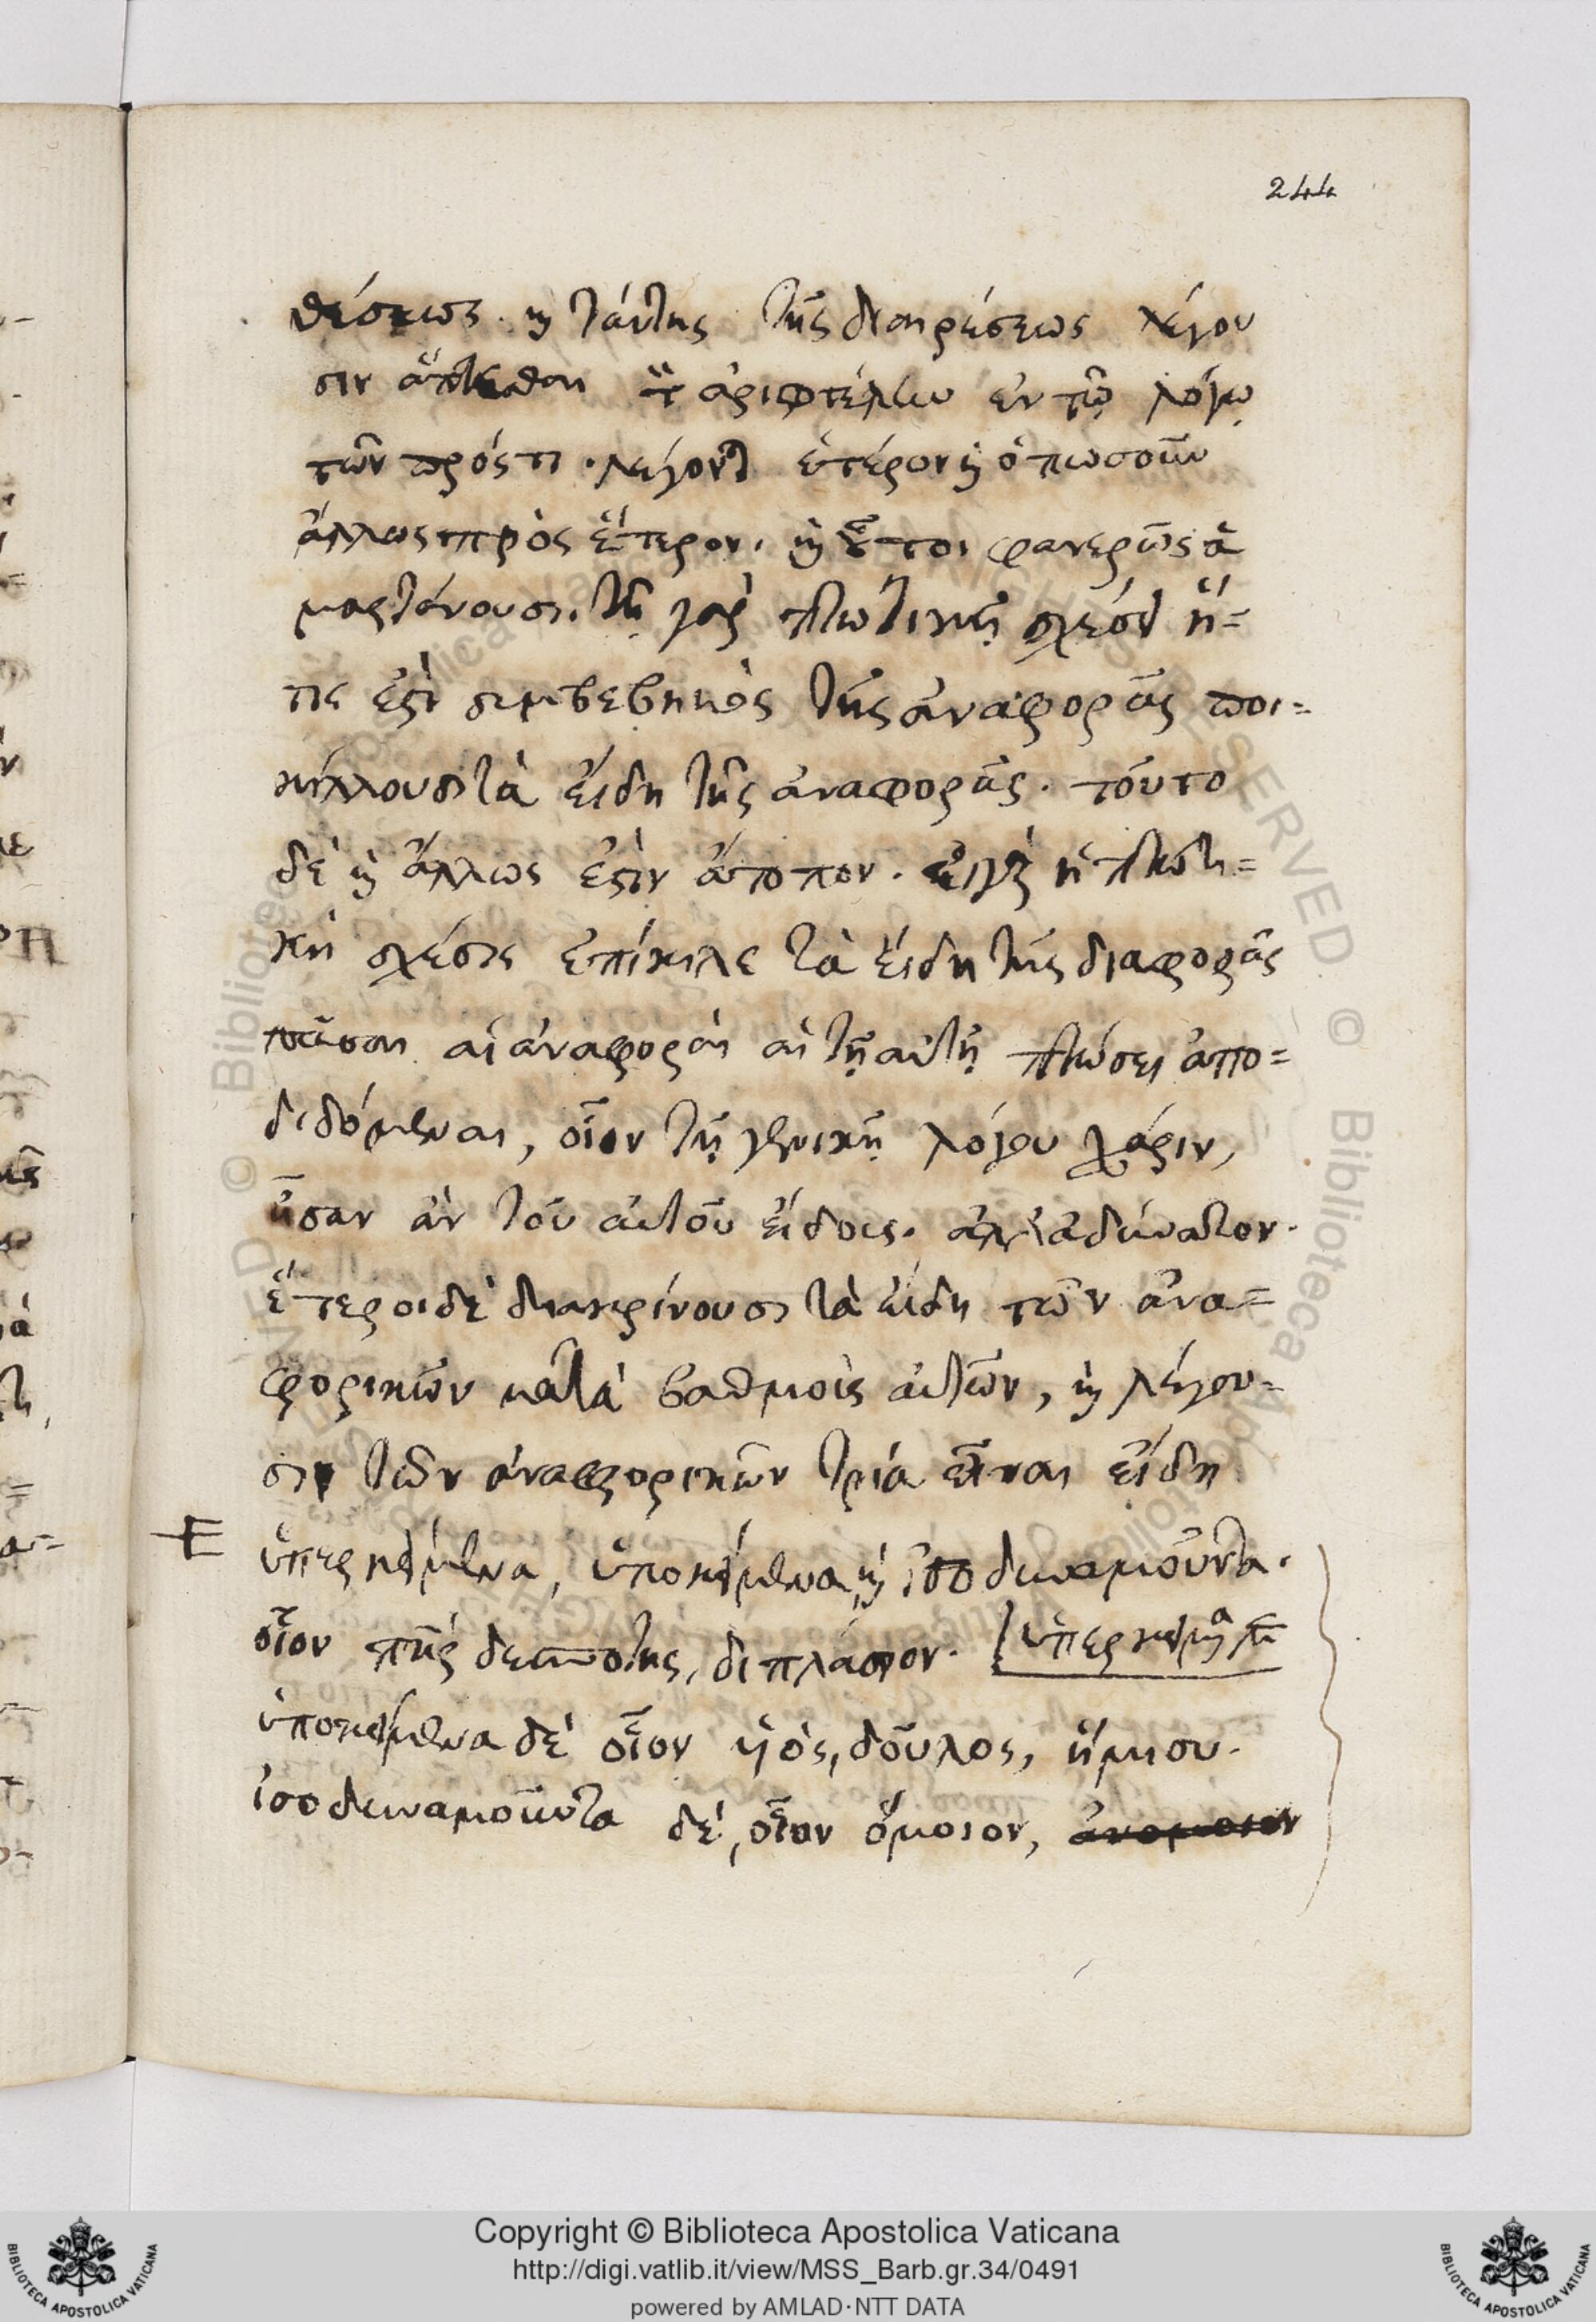 244
θέσεως. καὶ ταύτης τῆς διαιρέσεως λέγου
σιν ἅπτεσθαι τὸν ἀριστοτέλην ἐν τῷ λόγῳ
τῶν πρός τι. λέγοντα ἑτέρου καὶ ὁπωσοῦν
ἄλλως πρὸς ἕτερον. καὶ οὗτοι φανερῶς ἁ
μαρτάνουσι. τῇ γὰρ πτωτικῇ σχέσει ἥ=
τις ἐστὶ συμβεβηκὸς τῆς ἀναφορᾶς ποι=
κίλλουσι τὰ εἴδη τῆς ἀναφορᾶς. τοῦτο
δὲ καὶ ἄλλως ἐστὶν ἄτοπον. εἰ γὰρ ἡ πτωτι=
κὴ σχέσις ἐποίκιλε τὰ εἴδη τῆς διαφορᾶς
πᾶσαι αἱ ἀναφοραὶ αἱ τῇ αὐτῇ πτώσει ἀπο=
διδόμεναι, οἷον τῇ γενικῇ λόγου χάριν,
ἦσαν ἂν τοῦ αὐτοῦ εἴδους. ἀλλ' ἀδύνατον.
ἕτεροι δὲ διακρίνουσι τὰ εἴδη τῶν ἀνα=
φορικῶν κατὰ βαθμοὺς αὐτῶν, καὶ λέγου=
σι τῶν ἀναφορικῶν τρία εἶναι εἴδη
ὑπερκείμενα, ὑποκείμενα, καὶ ἰσοδυναμοῦντα.
οἷον πατὴρ δεσπότης, διπλάσιον. ὑπερκείμενα
ὑποκείμενα δὲ οἷον υἱὸς, δοῦλος, ἥμισυ.
ἰσοδυναμοῦντα δέ, οἷον ὅμοιον, ἀνόμοιον
Copyright © Biblioteca Apostolica Vaticana
http://digi.vatlib.it/view/MSS_Barb.gr.34/0491
powered by AMLAD·NTT DATA